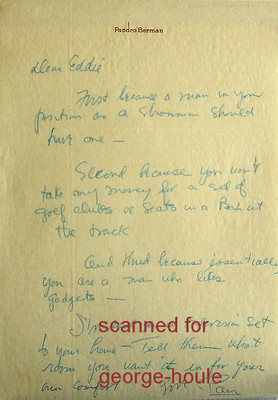 Pandro Berman
Dear Eddie
First because a man in your
position as a showman should
have one —
Second because you won't
take my money for a set of
golf clubs or seats in a Box at
the track
And third because essentially
you are a man who likes
gadgets —
set
scanned for
to your home — Tell them what
room you want it in for your
own comfort —
george-houle